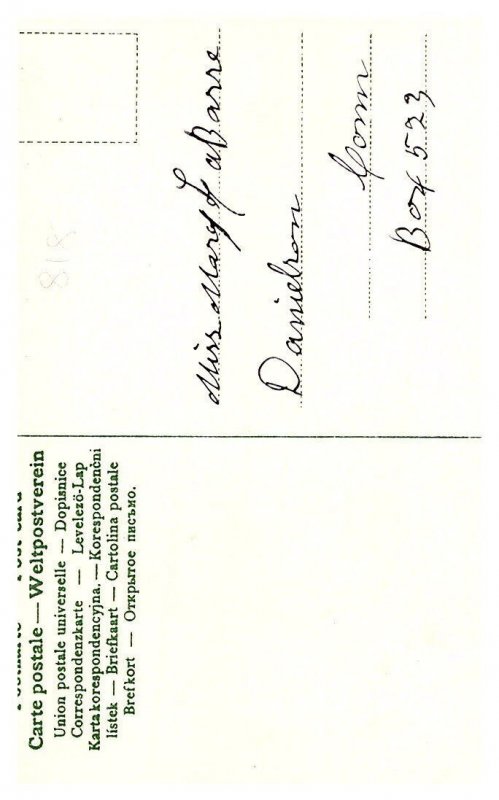 Carte postale — Weltpostverein
Union postale universelle — Dopisnice
Correspondenzkarte — Levelező-Lap
Karta korespondencyjna. — Korespondenční
lístek — Briefkaart — Cartolina postale
Brefkort — Открытое письмо.
Miss Mary LaBarre
Danielson
Conn
Box 523
818